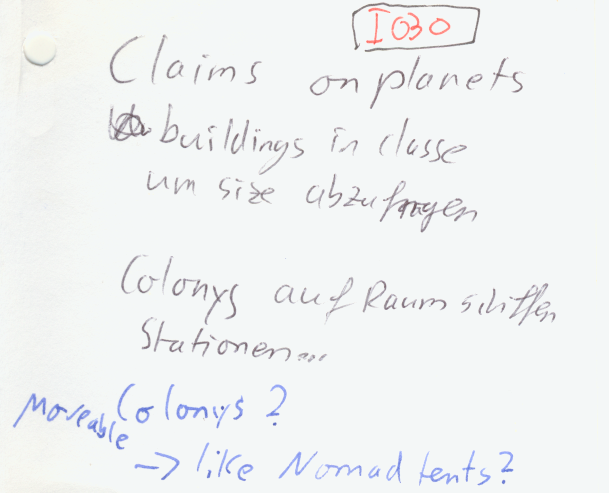 I030
Claims on planets
buildings in classe
um size abzufragen
Colonys auf Raumschiffen
Stationen...
Moveable Colonys?
-> like Nomad tents?